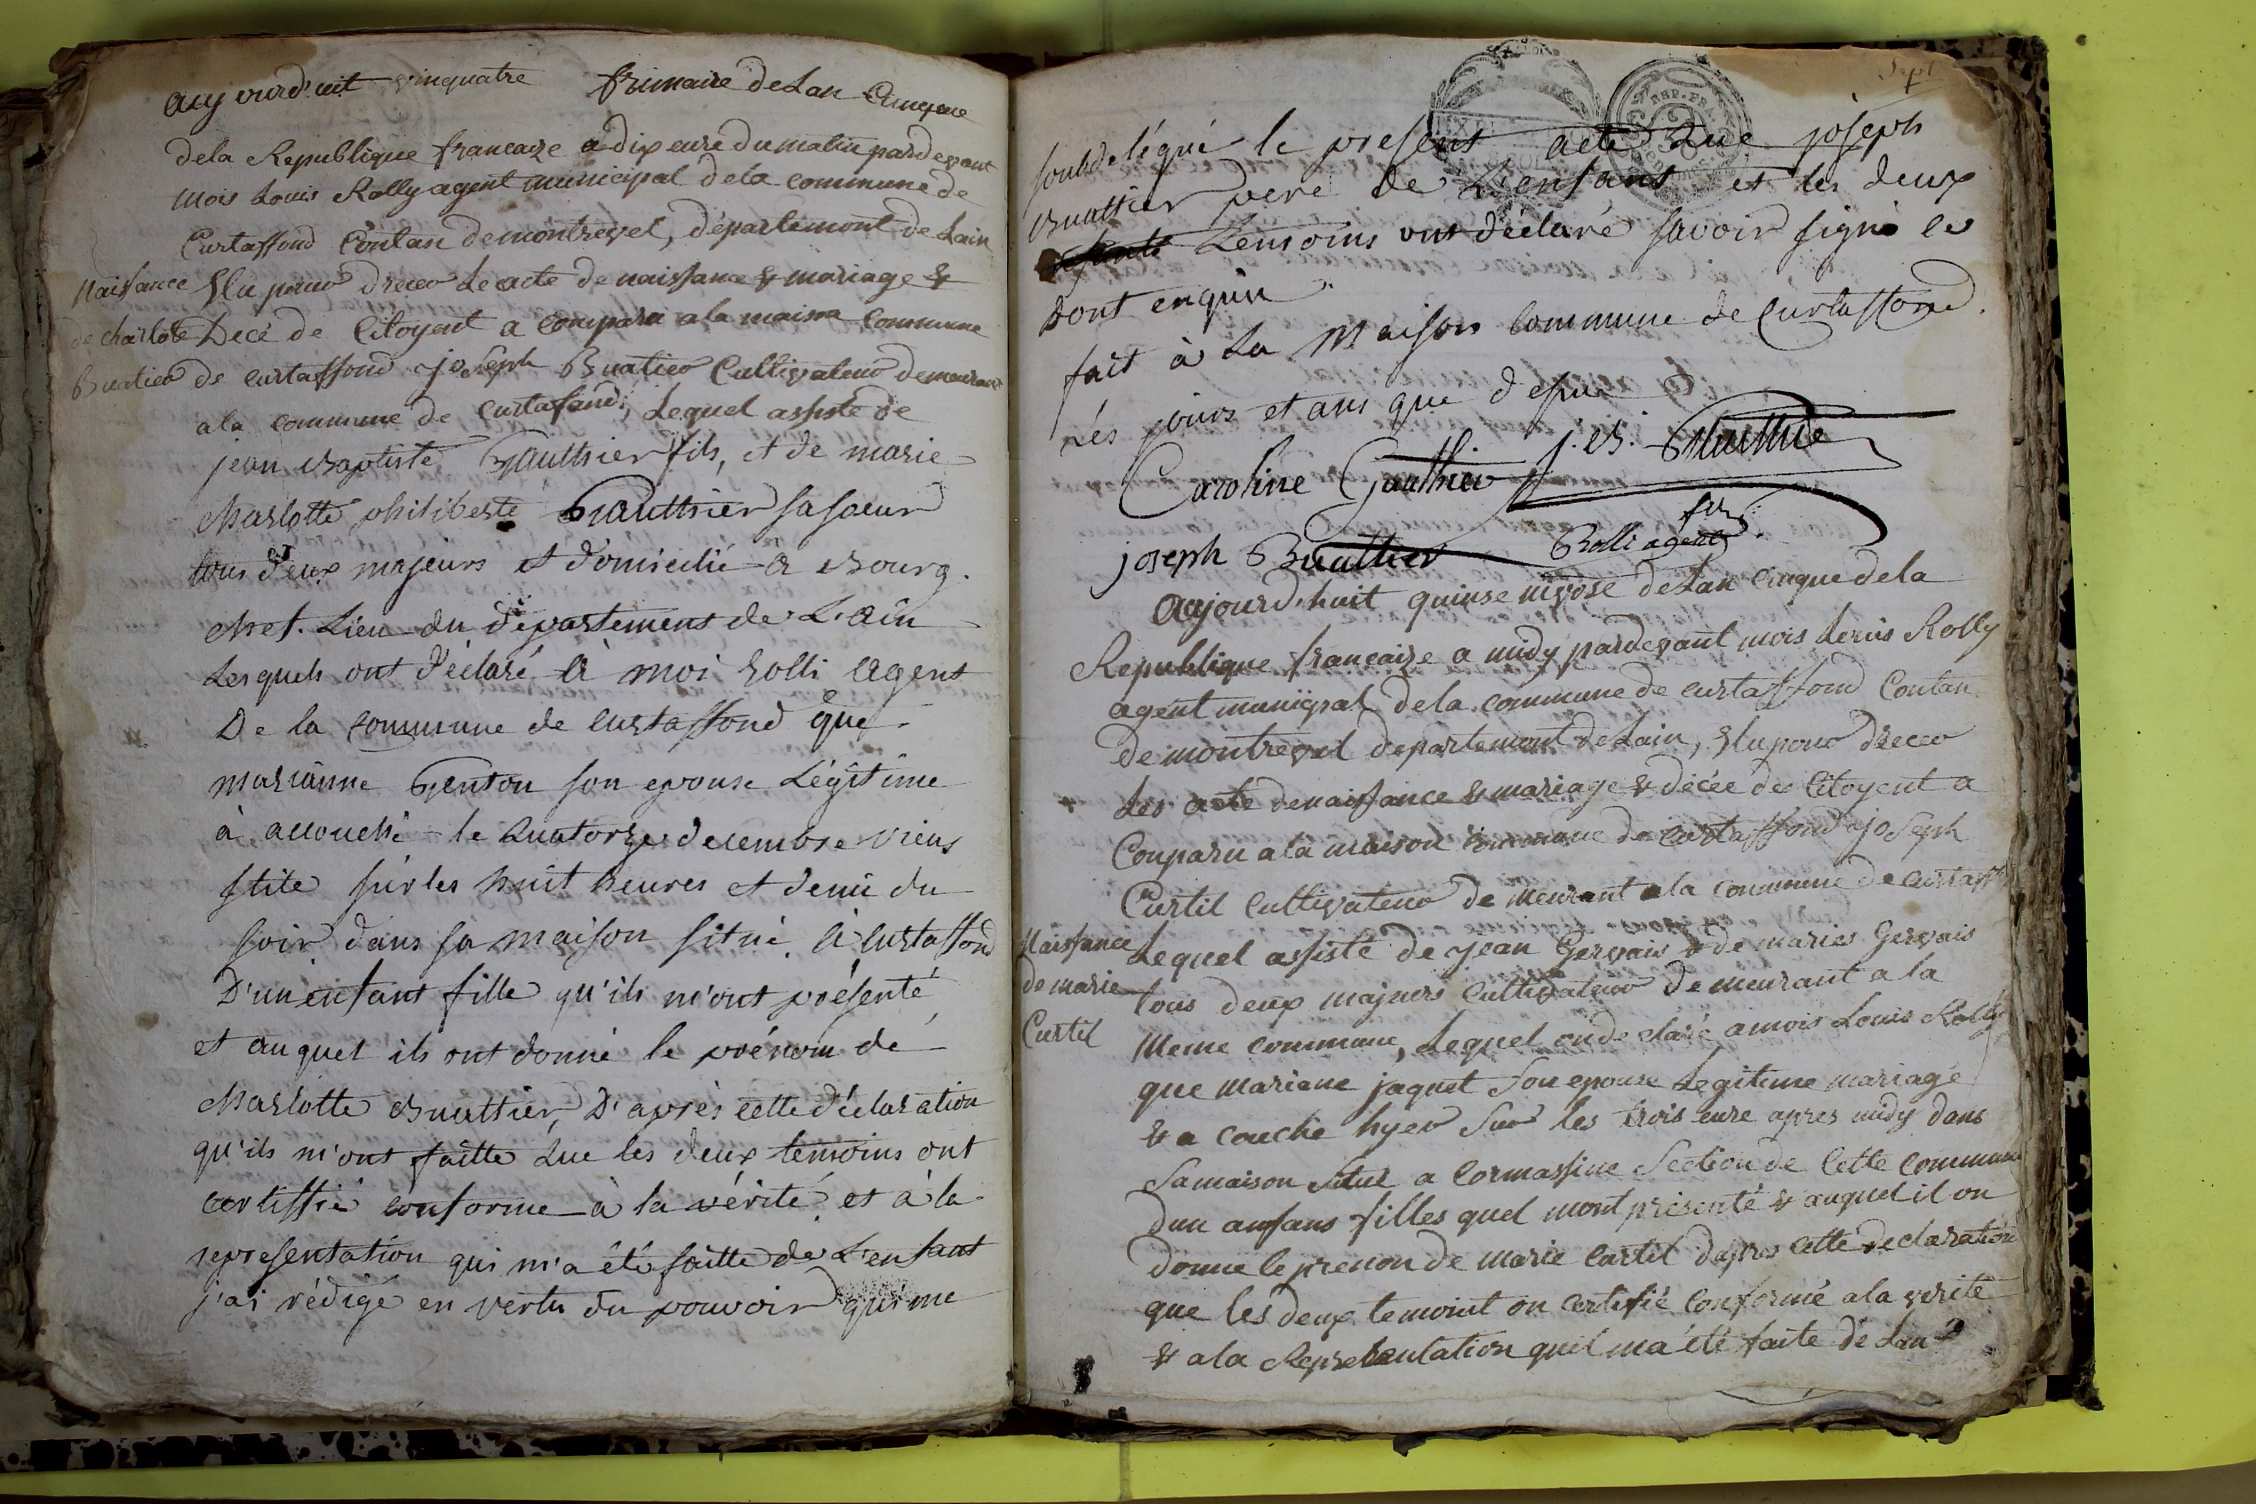 aujourd'uit vinquatre frimaire de Lan Cinque
dela Republique francaize a dix eure du matin pardevant
mois Louis Rolly agent municipal dela commune de
Curtaffond Contan de montrevel, département de Lain
Elu pour drecer Le acte de naissance & mariage &
Decé de Citoyent a comparu a la maison commune
de curtaffond joSeph Buatier Cultivateur demeurant
a la commune de Curtafond, Lequel assisté de
jean Baptiste Gauthier fils, et de marie
Charlotte philiberte Gauthier sa soeur
tous deux majeurs et domicilié à Bourg.
Chef. Lieu du département de L'ain
Lesquels ont déclaré à moi Rolli agent
De la commune de Curtaffond que
marianne Genton son epouse Légitime
à accouché le quatorze decembre viens
stile sur les huit heures et demi du
soir dans sa maison situé à Curtaffond
D'un enfant fille qu'ils m'ont présenté
et auquel ils ont donné le prénom de
Charlotte Buattier, D'après cette déclaration
qu'ils m'ont faitte que les deux temoins ont
certiffié conforme à la vérité et à la
representation qui m'a été faitte de L'enfant
j'ai rédigé en vertu du pouvoir qui me
Naissance
de charlote
Buatier
Sept
sont délégué le present acte que joseph
Buattier pere de L'enfant et les deux
temoins ont déclaré savoir signé les
Dont enquis
fait à La Maison Commune de Curtaffond
Lés jours et ans que depui
Caroline Gauthier J. B. Gauthier
fils
joseph Buattier Rolli agent
Aujourd'huit quinse nivose de Lan Cinque dela
Republique francaize a midy pardevant mois Louis Rolly
agent municipal dela commune de curtaffond Contan
de montrevel departement de Lain, Elu pour drecer
Les acte de naissance & mariage & décée des Citoyent a
Conparu a la maison commune de curtaffond joSeph
Curtil cultivateur demeurant a la commune de curtaff
Lequel assisté de jean Gervais & de maries Gervais
tous deux majeurs cultivateur demeurant a la
meme commune, Lequel on declaré a mois Louis Rolly
que mariane jaquet Son epouse Legitime mariage
& a couche hyer Sur les trois eure apres midy dans
Sa maison Situé a Cormassine Section de Cette Commune
dun anfans filles quel mont présenté & auquel il on
donne le prenon de marie Curtil dapres cette declaration
que les deux temoint on certifié Conformé a la verité
& a la Representation quil ma été faite de Lan
Naissance
de marie
Curtil